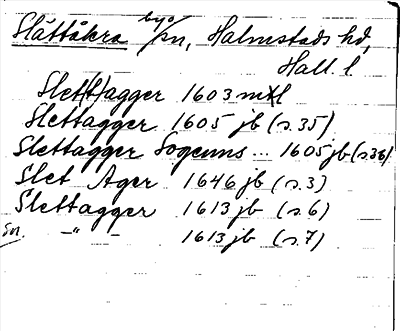 Slättåkra byo/sn, Halmstads hd,
Hall. l.
Slet(t)agger 1603 mtl
Slettagger 1605 jb (s.35)
Slettagger Sogenns ... 1605 jb (s.36)
Slet Ager 1646 jb (s.3)
Slettagger 1613 jb (s.6)
Sn. -"- 1613 jb (s.7)